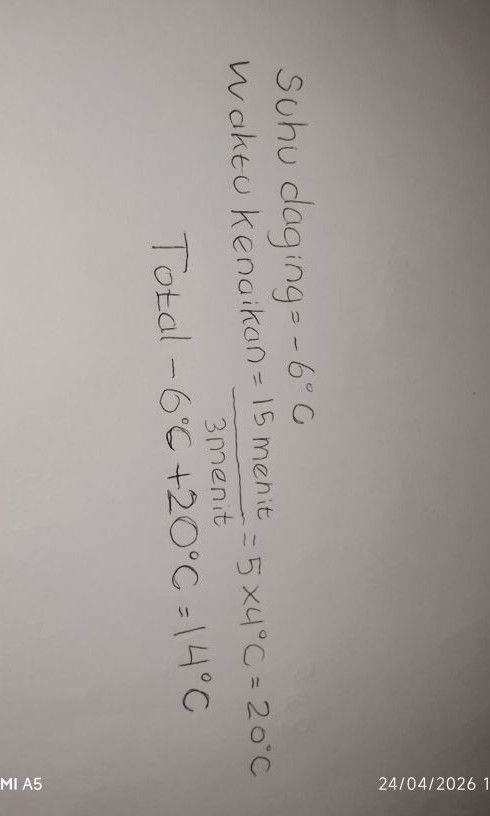 Suhu daging = -6°C
Waktu kenaikan = 15 menit = 5 x 4°C = 20°C
3 menit
Total -6°C + 20°C = 14°C
MI A5
24/04/2026 1